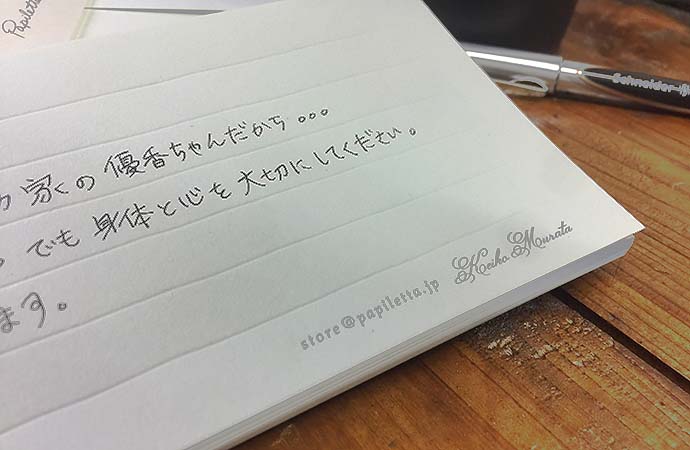 Papiletta
Schneider
家の優香ちゃんだから。。。
でも身体と心を大切にしてください。
ます。
store@papiletta.jp
Keiko Murata